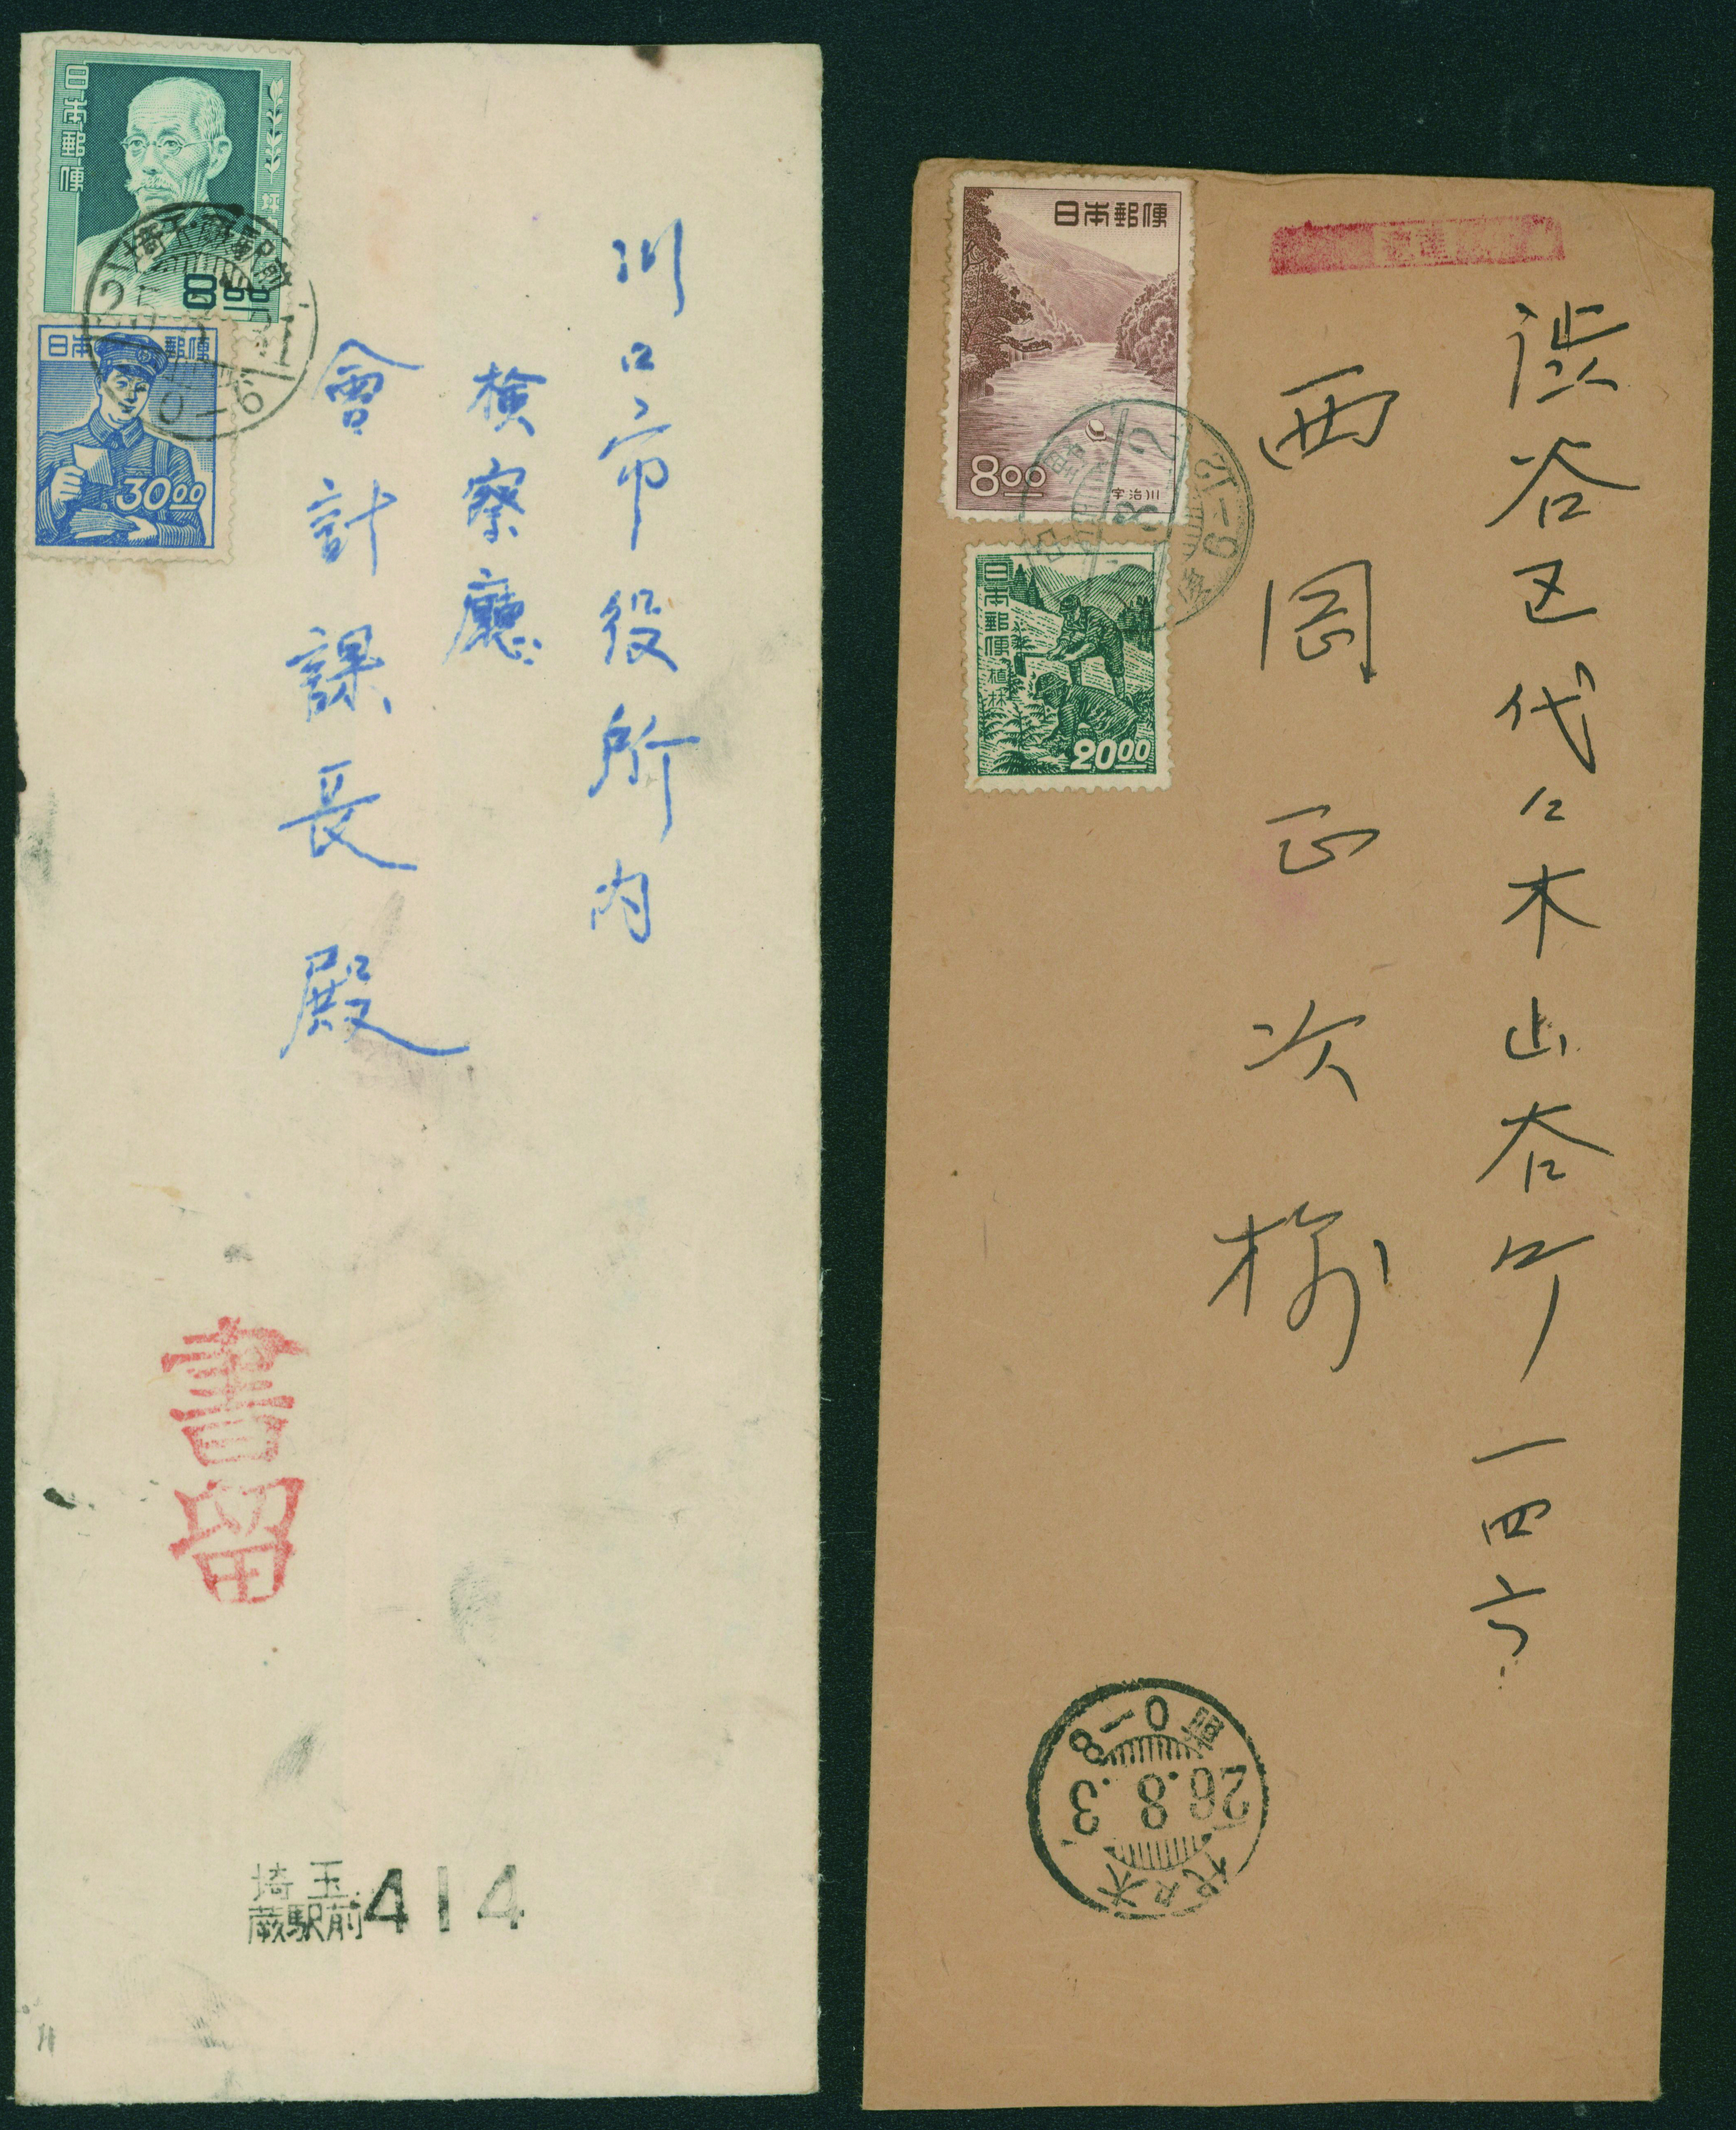 日本郵便
8.00
日本郵便
30.00
川口市役所内
検察廳
會計課長殿
書留
埼玉
蕨駅前
414
日本郵便
8.00
宇治川
日本郵便
植林
20.00
渋谷区代々木山谷町一四六
西岡正次様
代々木
26.8.3
0-8